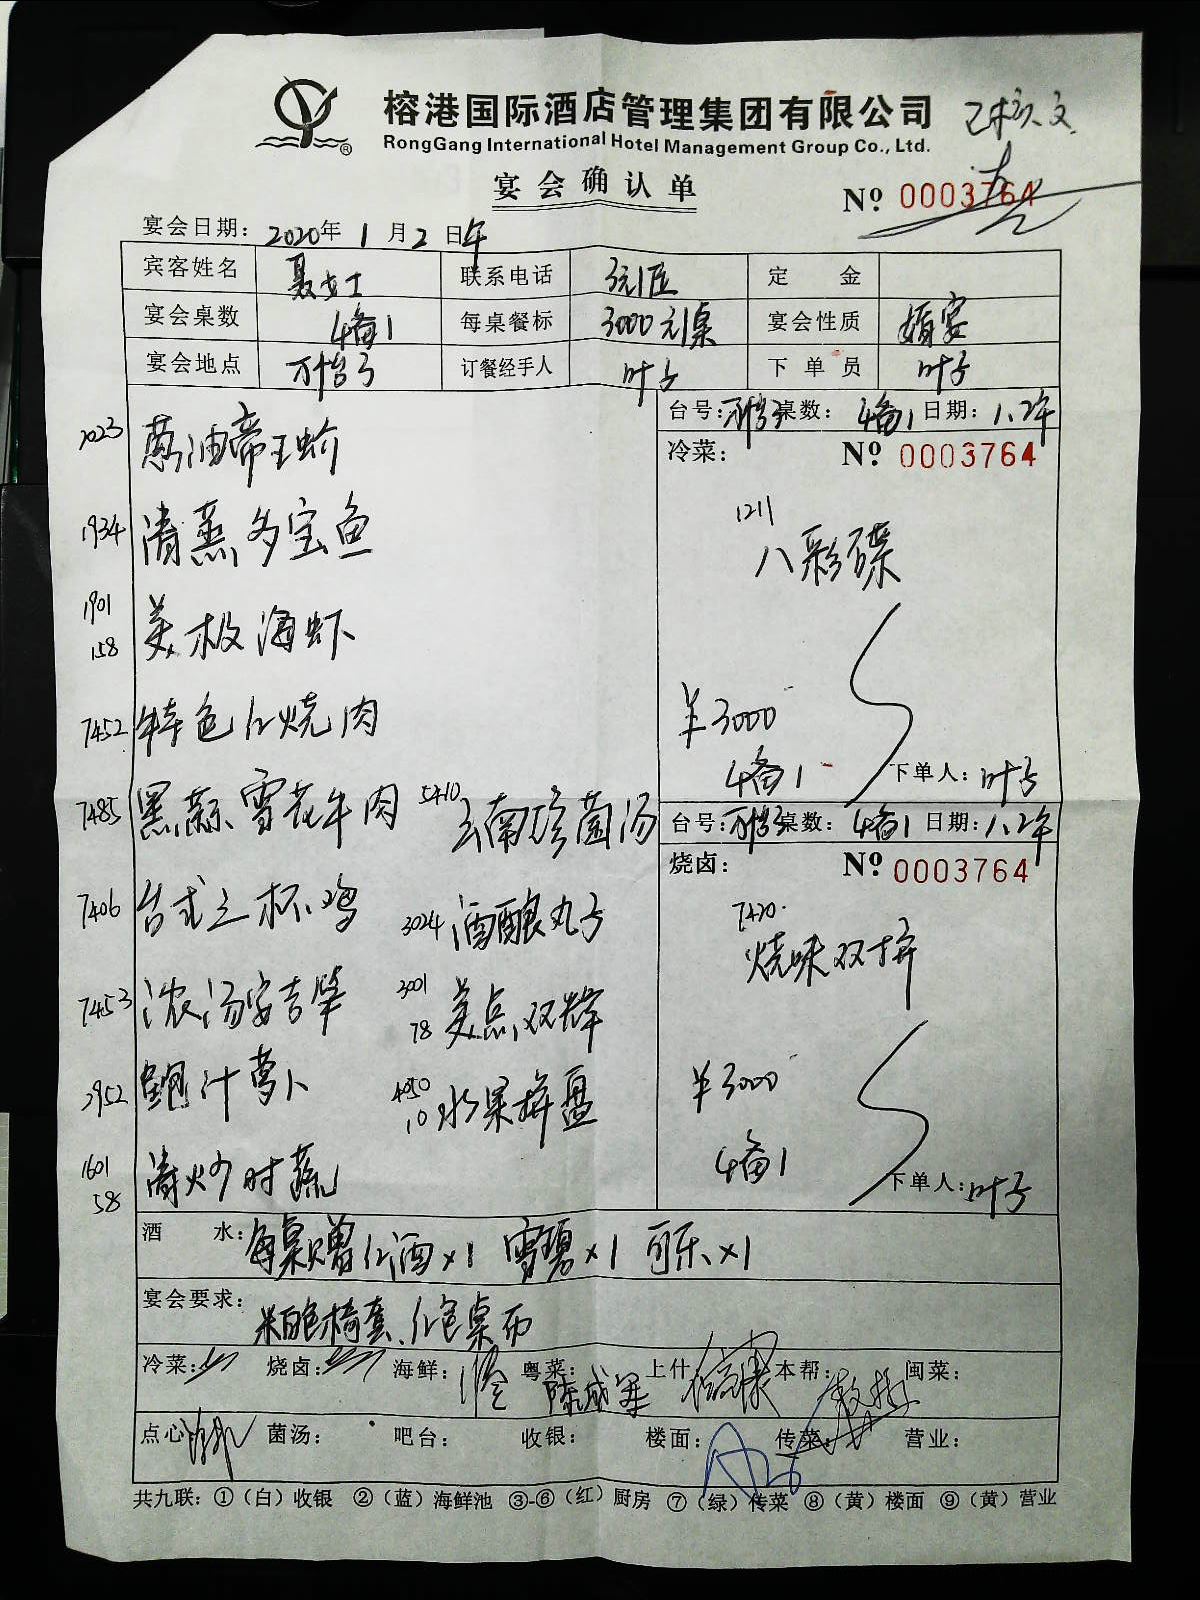 榕港国际酒店管理集团有限公司
RongGang International Hotel Management Group Co., Ltd.
宴会确认单
№ 0003764
宴会日期: 2020年 1 月 2 日午
宾客姓名 聂女士 联系电话 定金
宴会桌数 4备1 每桌餐标 3000元/桌 宴会性质 婚宴
宴会地点 订餐经手人 叶子 下单员 叶子
台号: 桌数: 4备1 日期: 1.2午
冷菜: № 0003764
2023 葱油帝王蚧
1211
八彩碟
1934 清蒸多宝鱼
1901
158 美极海虾
¥3000
4备1
下单人: 叶子
7452 特色红烧肉
7485 黑蒜雪花牛肉 5410 云南珍菌汤
台号: 桌数: 4备1 日期: 1.2午
烧卤: № 0003764
7406 台式三杯鸡 3024 酒酿丸子
7420
烧味双拼
7453 浓汤安吉笋 3001
78 美点双辉
2952 鲍汁萝卜 4050
10 水果拼盘
¥3000
4备1
下单人: 叶子
1601
58 清炒时蔬
酒水: 每桌赠红酒×1 雪碧×1 可乐×1
宴会要求: 米白色椅套、红色桌布
冷菜: 烧卤: 海鲜: 粤菜: 上什 本帮: 闽菜:
点心 菌汤: 吧台: 收银: 楼面: 传菜: 营业:
共九联: ①(白)收银 ②(蓝)海鲜池 ③-⑥(红)厨房 ⑦(绿)传菜 ⑧(黄)楼面 ⑨(黄)营业